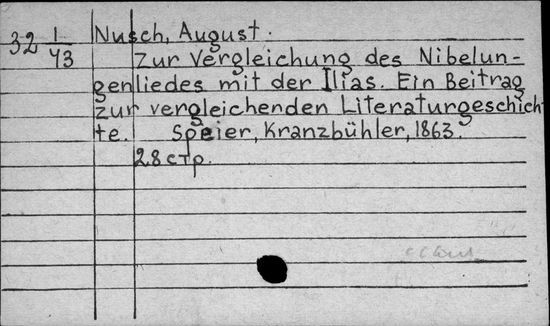 32 1/43 Nusch, August.
Zur Vergleichung des Nibelun-
genliedes mit der Ilias. Ein Beitrag
zur vergleichenden Literaturgeschich-
te. Speier, Kranzbühler, 1863.
28 стр.